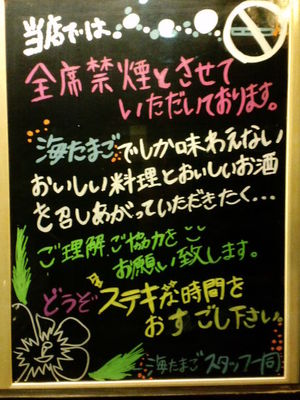 当店では。
全席禁煙とさせて
いただいております。
海たまごでしか味わえない
おいしい料理とおいしいお酒
を召しあがっていただきたく…
ご理解ご協力を
お願い致します。
どうぞステキな時間を
おすごし下さい。
海たまごスタッフ一同